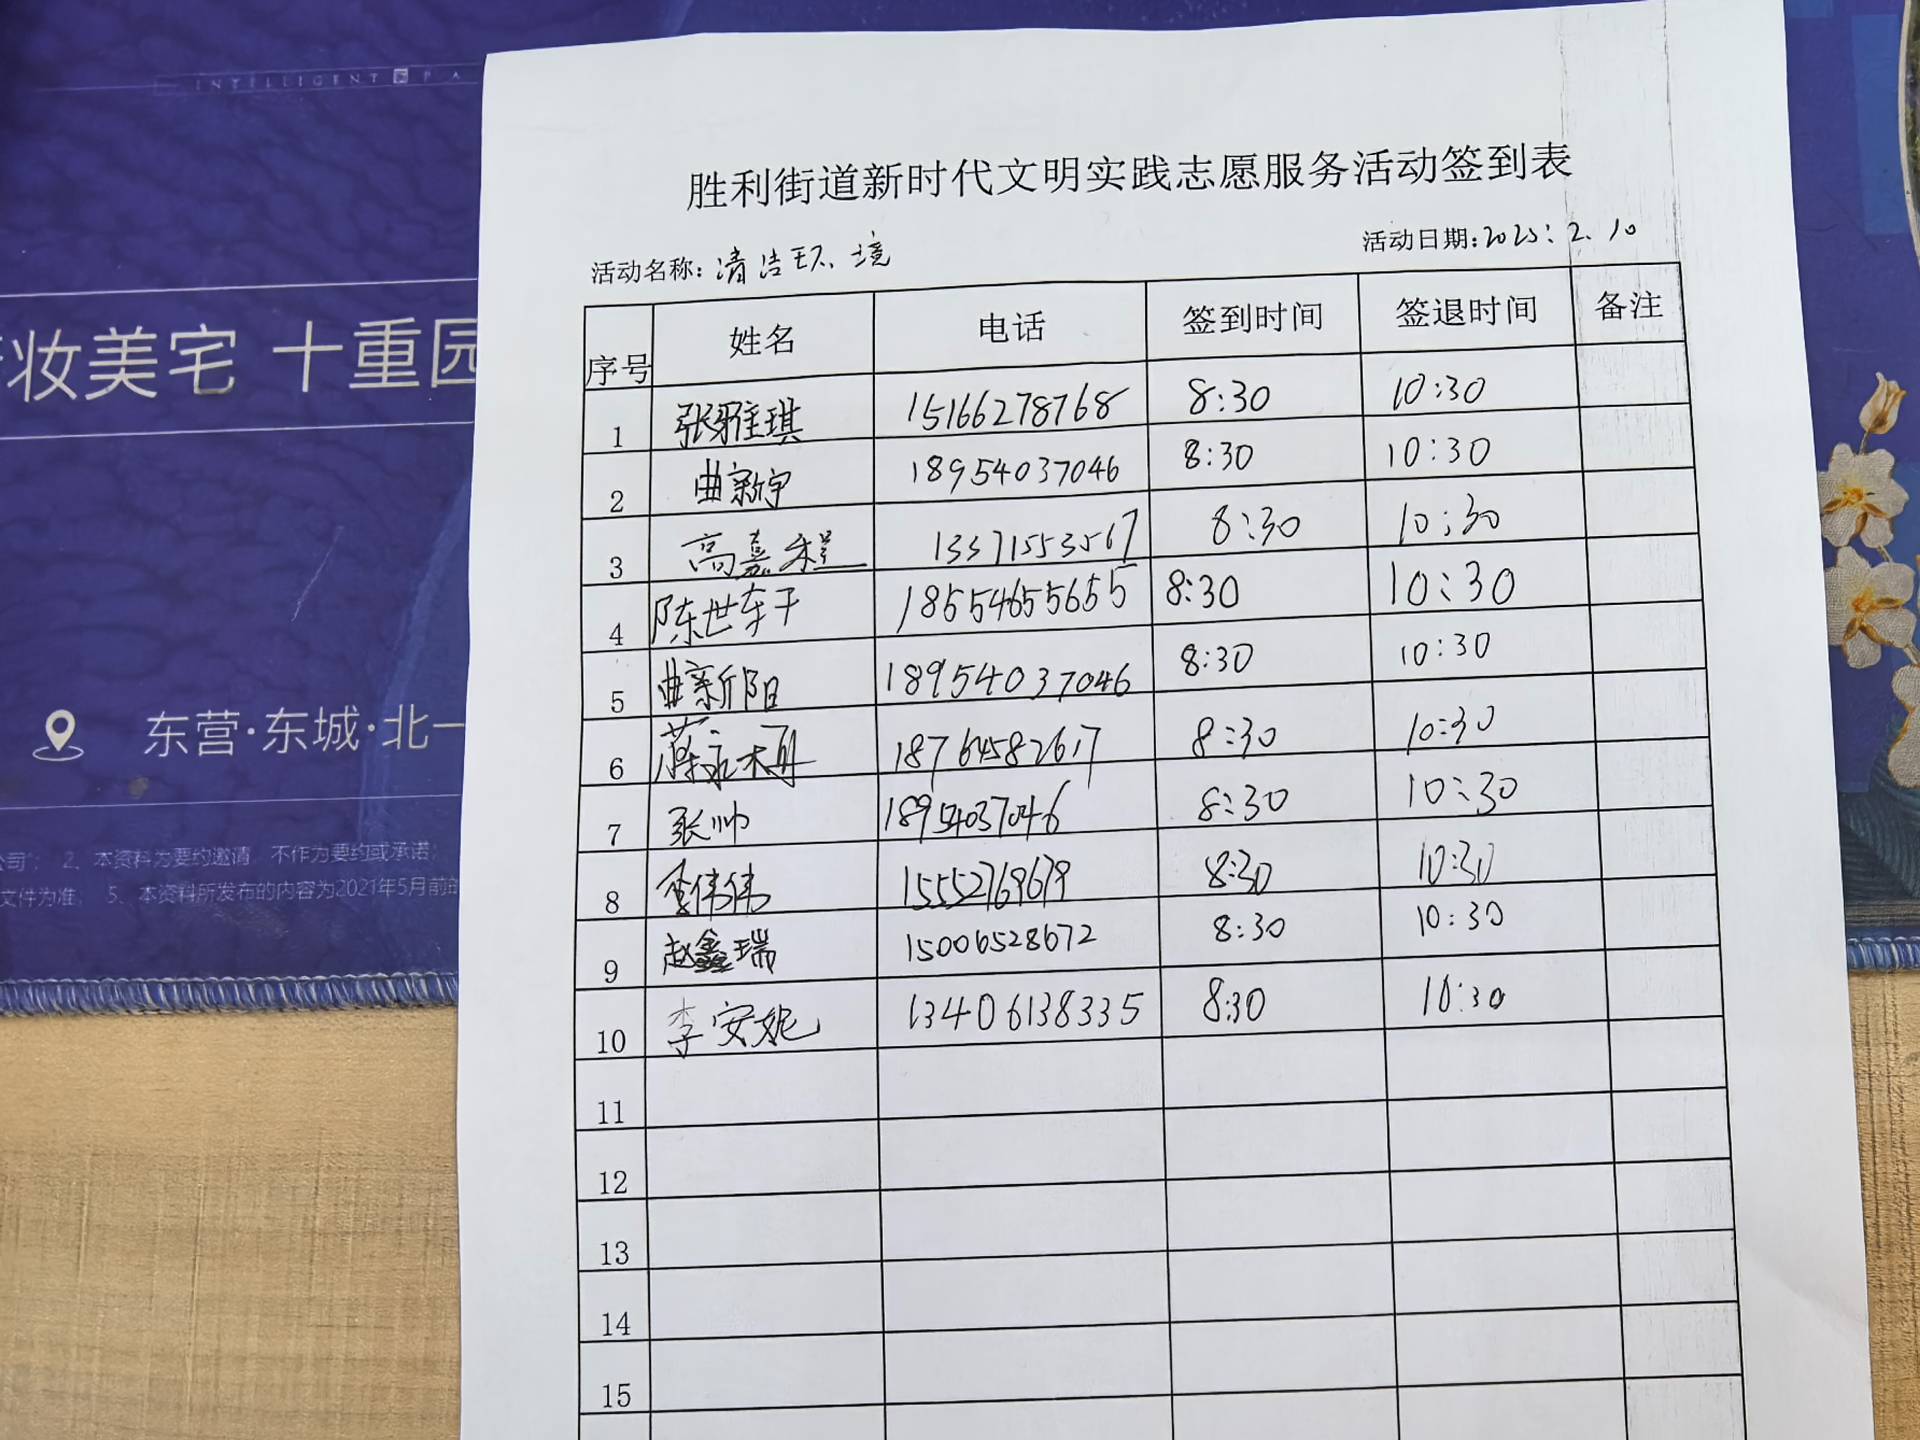 INTELLIGENT PA
妆美宅 十重园
东营·东城·北一
公司”； 2、本资料为要约邀请，不作为要约或承诺；
文件为准。 5、本资料所发布的内容为2021年5月前的
胜利街道新时代文明实践志愿服务活动签到表
活动名称：清洁环境 活动日期：2025：2.10
序号 姓名 电话 签到时间 签退时间 备注
1 张雅琪 15166278768 8:30 10:30
2 曲新宇 18954037046 8:30 10:30
3 高嘉程 13371553567 8:30 10:30
4 陈世东于 18554655655 8:30 10:30
5 曲新阳 18954037046 8:30 10:30
6 蔣永梅 18764582617 8:30 10:30
7 张帅 18954037046 8:30 10:30
8 李伟伟 15552769679 8:30 10:30
9 赵鑫瑞 15006528672 8:30 10:30
10 李安妮 13406138335 8:30 10:30
11
12
13
14
15